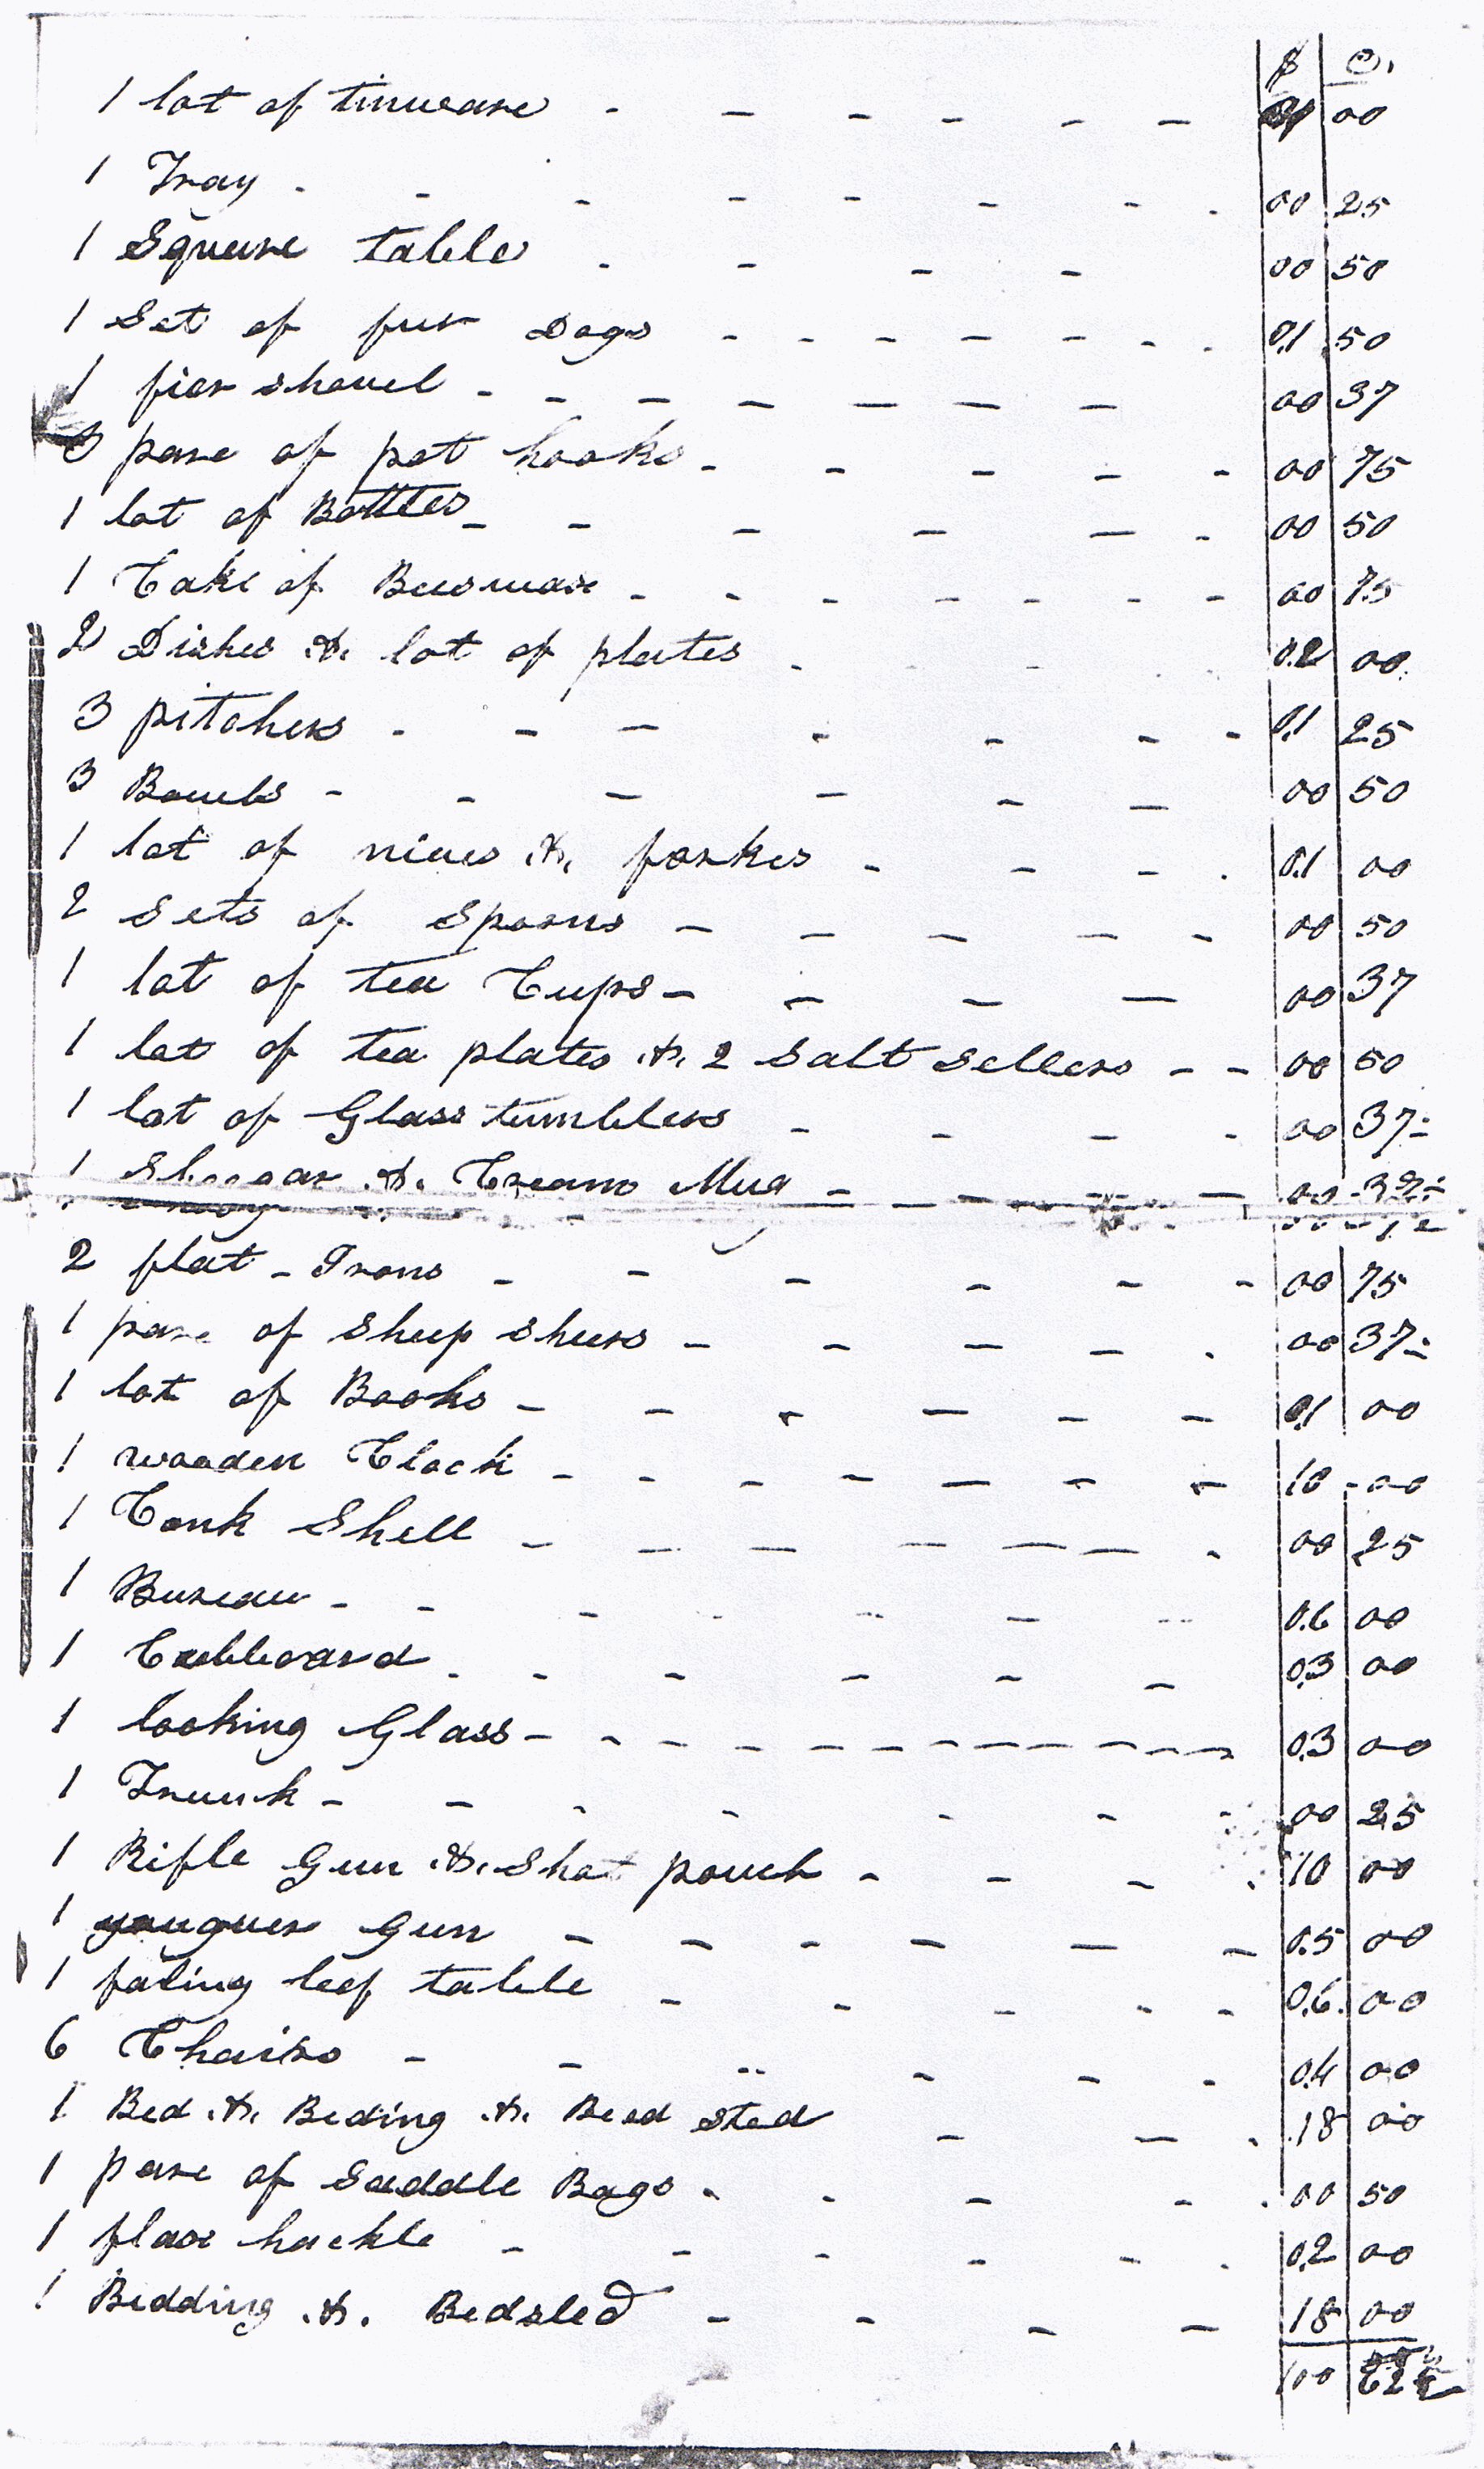 $ C.
1 lot of tinware - - - - - - 01 00
1 Tray - - - - - - - - 00 25
1 Square table - - - - 00 50
1 Set of fier Dogs - - - - - - - 01 50
1 fier shovel - - - - - - - 00 37
pare of pot hooks - - - - - 00 75
1 lot of Bottles - - - - - - 00 50
1 Cake of Beeswax - - - - - - - 00 75
2 Dishes & lot of plates - - - - 02 00
3 pitchers - - - - - - - 01 25
3 Bowls - - - - - - 00 50
1 lot of nives & forkes - - - - 01 00
2 Sets of Spoons - - - - - 00 50
1 lot of tea Cups - - - - 00 37
1 lot of tea plates & 2 Salt Sellers - - 00 50
1 lot of Glass tumblers - - - - 00 37½
1 Shoogar & Creame Mug - - - - 00 37½
2 flat-Irons - - - - - - 00 75
1 pare of Sheep Shears - - - - - 00 37½
1 lot of Books - - - - - - 01 00
1 wooden Clock - - - - - - - 10-00
1 Conk Shell - - - - - - 00 25
1 Bureau - - - - - - - 06 00
1 Cubboard - - - - - - 03 00
1 looking Glass - - - - - - - - - - - - 03 00
1 Trunk - - - - - - - 00 25
1 Rifle Gun & Shot pouch - - - - 10 00
1 yauguer Gun - - - - - - 05 00
1 faling leef table - - - - - 06 00
6 Chairs - - - - - - 04 00
1 Bed & Beding & Bead sted - - - 18 00
1 pare of Saddle Bags - - - - - 00 50
1 flax hackle - - - - - - 02 00
1 Bedding & Bedsted - - - - 18 00
100